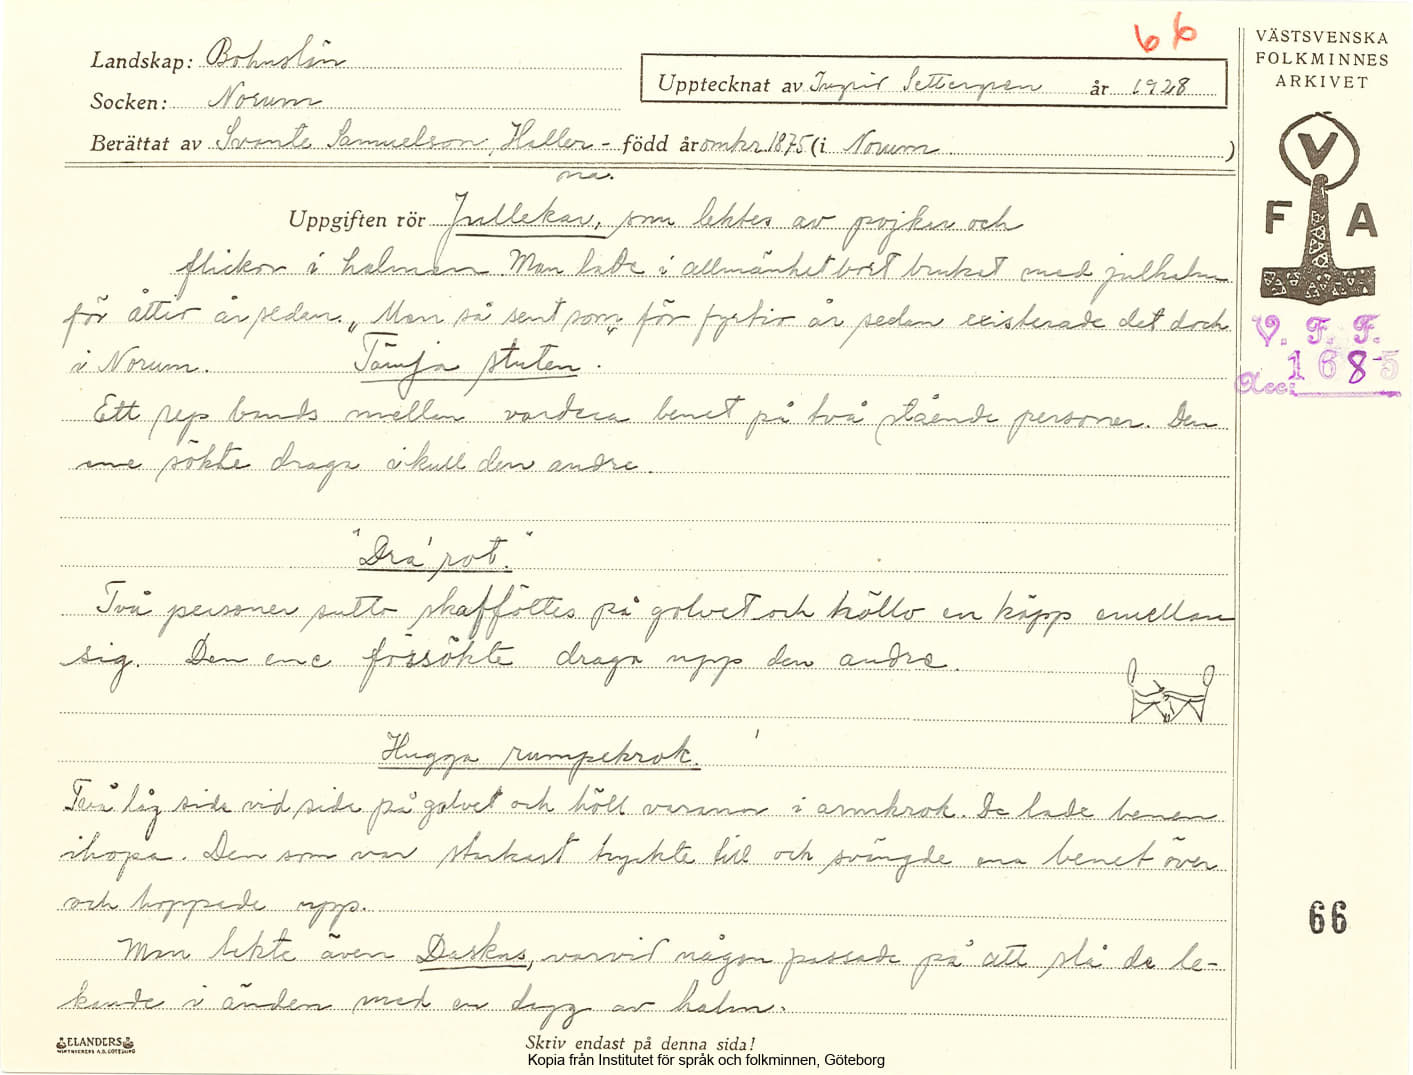 66
Landskap: Bohuslän
Socken: Norum
Upptecknat av Ingrid Settergren år 1928
Berättat av Svante Samuelson, Haller- född år omkr. 1875 (i Norum )
na.
Uppgiften rör Jullekar, som lektes av pojkar och
flickor i halmen. Man lade i allmänhet bort bruket med julhalm
för åttio år sedan. „Men så sent som" för fyrtio år sedan existerade det dock
i Norum. Tämja stuten.
Ett rep bands mellan vardera benet på två stående personer. Den
ene sökte draga ikull den andre.
"Dra' rot."
Två personer sutto skafföttes på golvet och höllo en käpp emellan
sig. Den ene försökte draga upp den andre.
Hugga rumpekrok.
Två låg sida vid sida på golvet och höll varann i armkrok. De lade benen
ihopa. Den som var starkast tryckte till och svängde ena benet över
och hoppade upp.
Man lekte även Daskas, varvid någon passade på att slå de le-
kande i änden med en dagg av halm.
ELANDERS
Skriv endast på denna sida!
Kopia från Institutet för språk och folkminnen, Göteborg
VÄSTSVENSKA
FOLKMINNES
ARKIVET
V
F A
V. F. F.
1685
Acc:
66